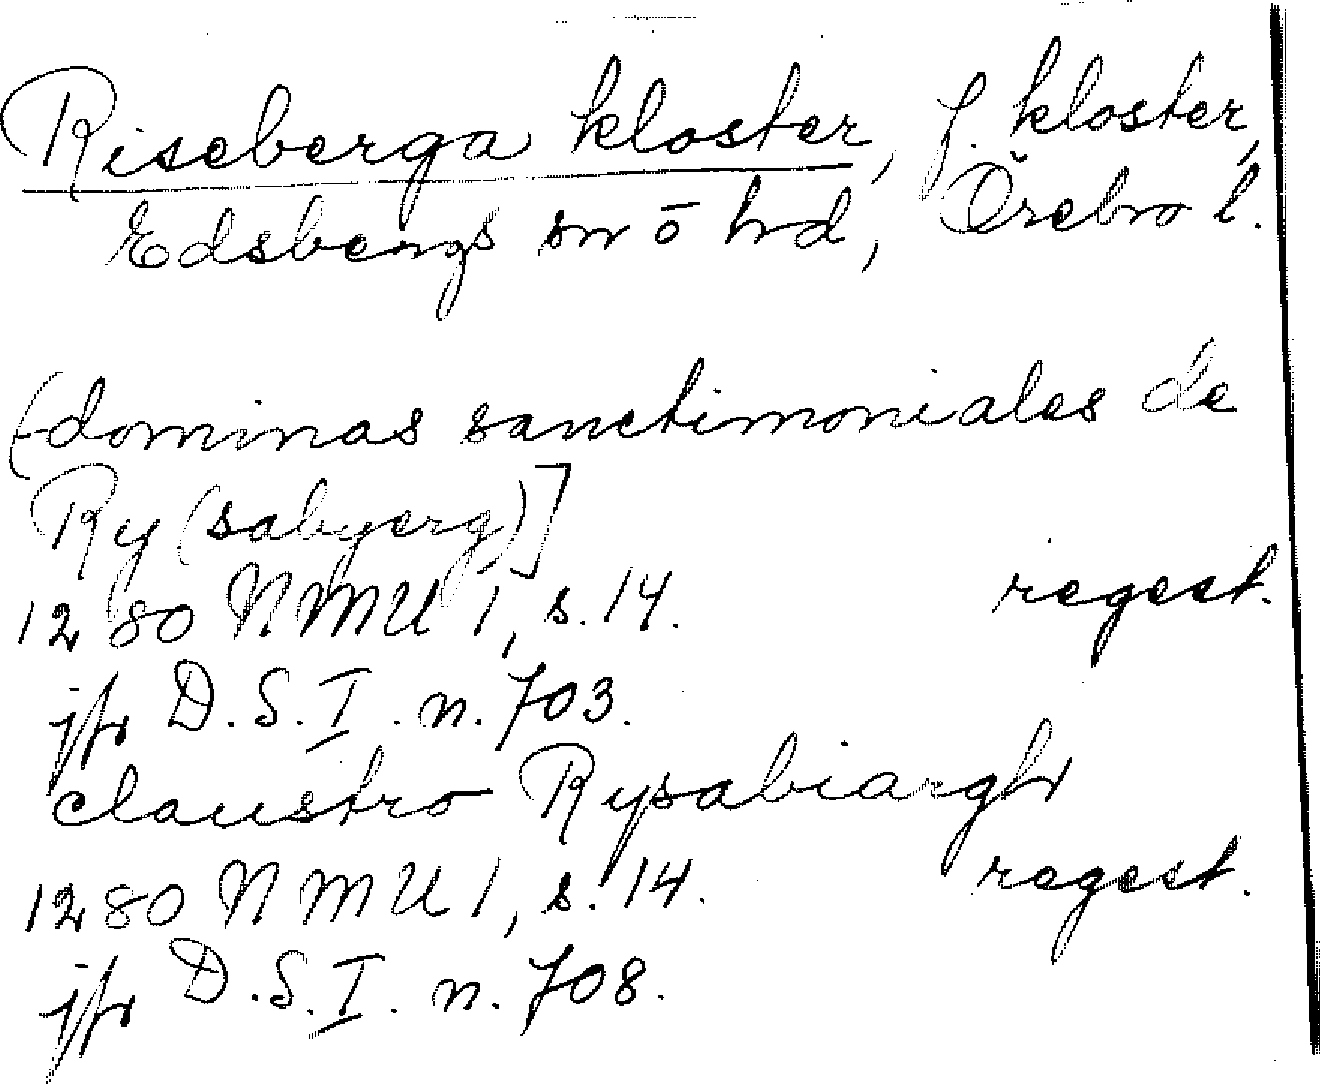 Riseberga kloster, f. kloster,
Edsbergs sn o hd, Örebro l.
[dominas sanctimoniales de
Ry(sabyerg)]
1280 NMU 1, s. 14. regest.
jfr D.S. I. n. 703.
claustro Rysabiargh
1280 NMU 1, s. 14. regest.
jfr D.S. I. n. 708.